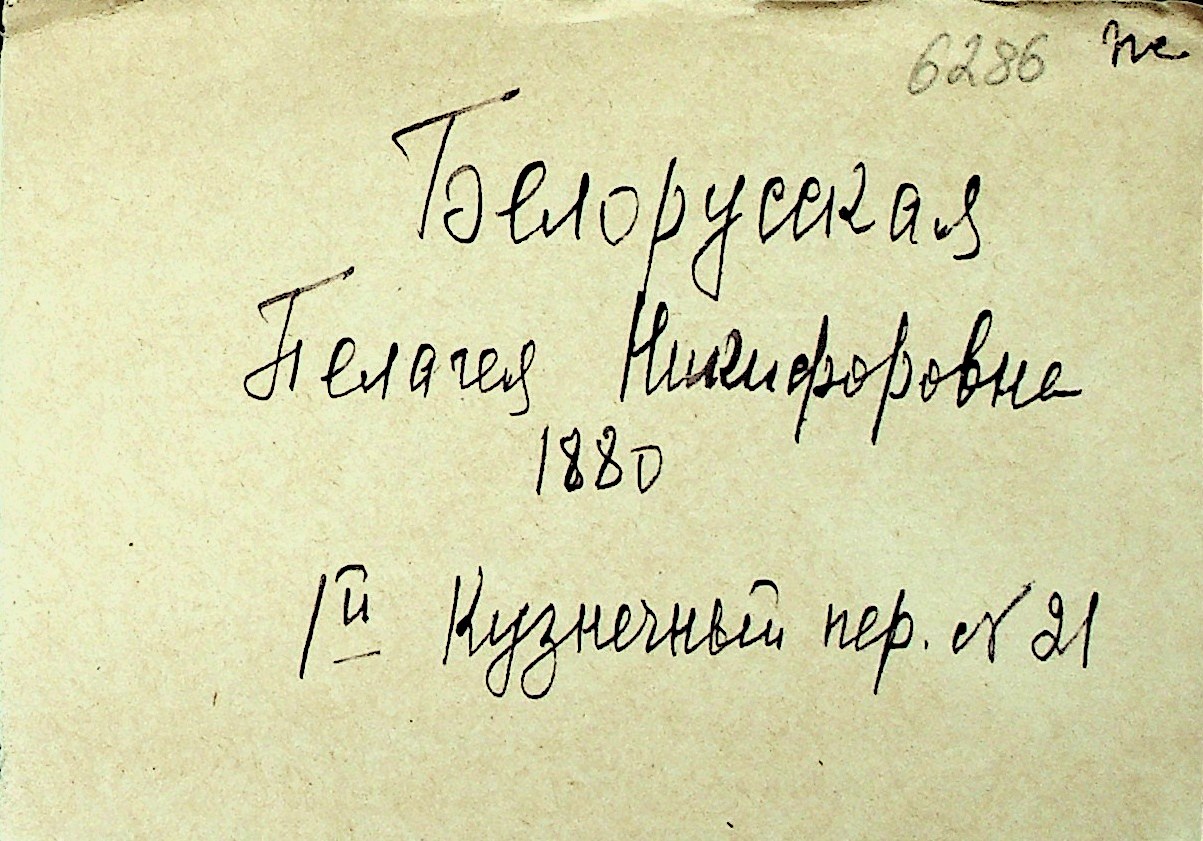 6286
Белорусская
Пелагея Никифоровна
1880
1й Кузнечный пер. № 21